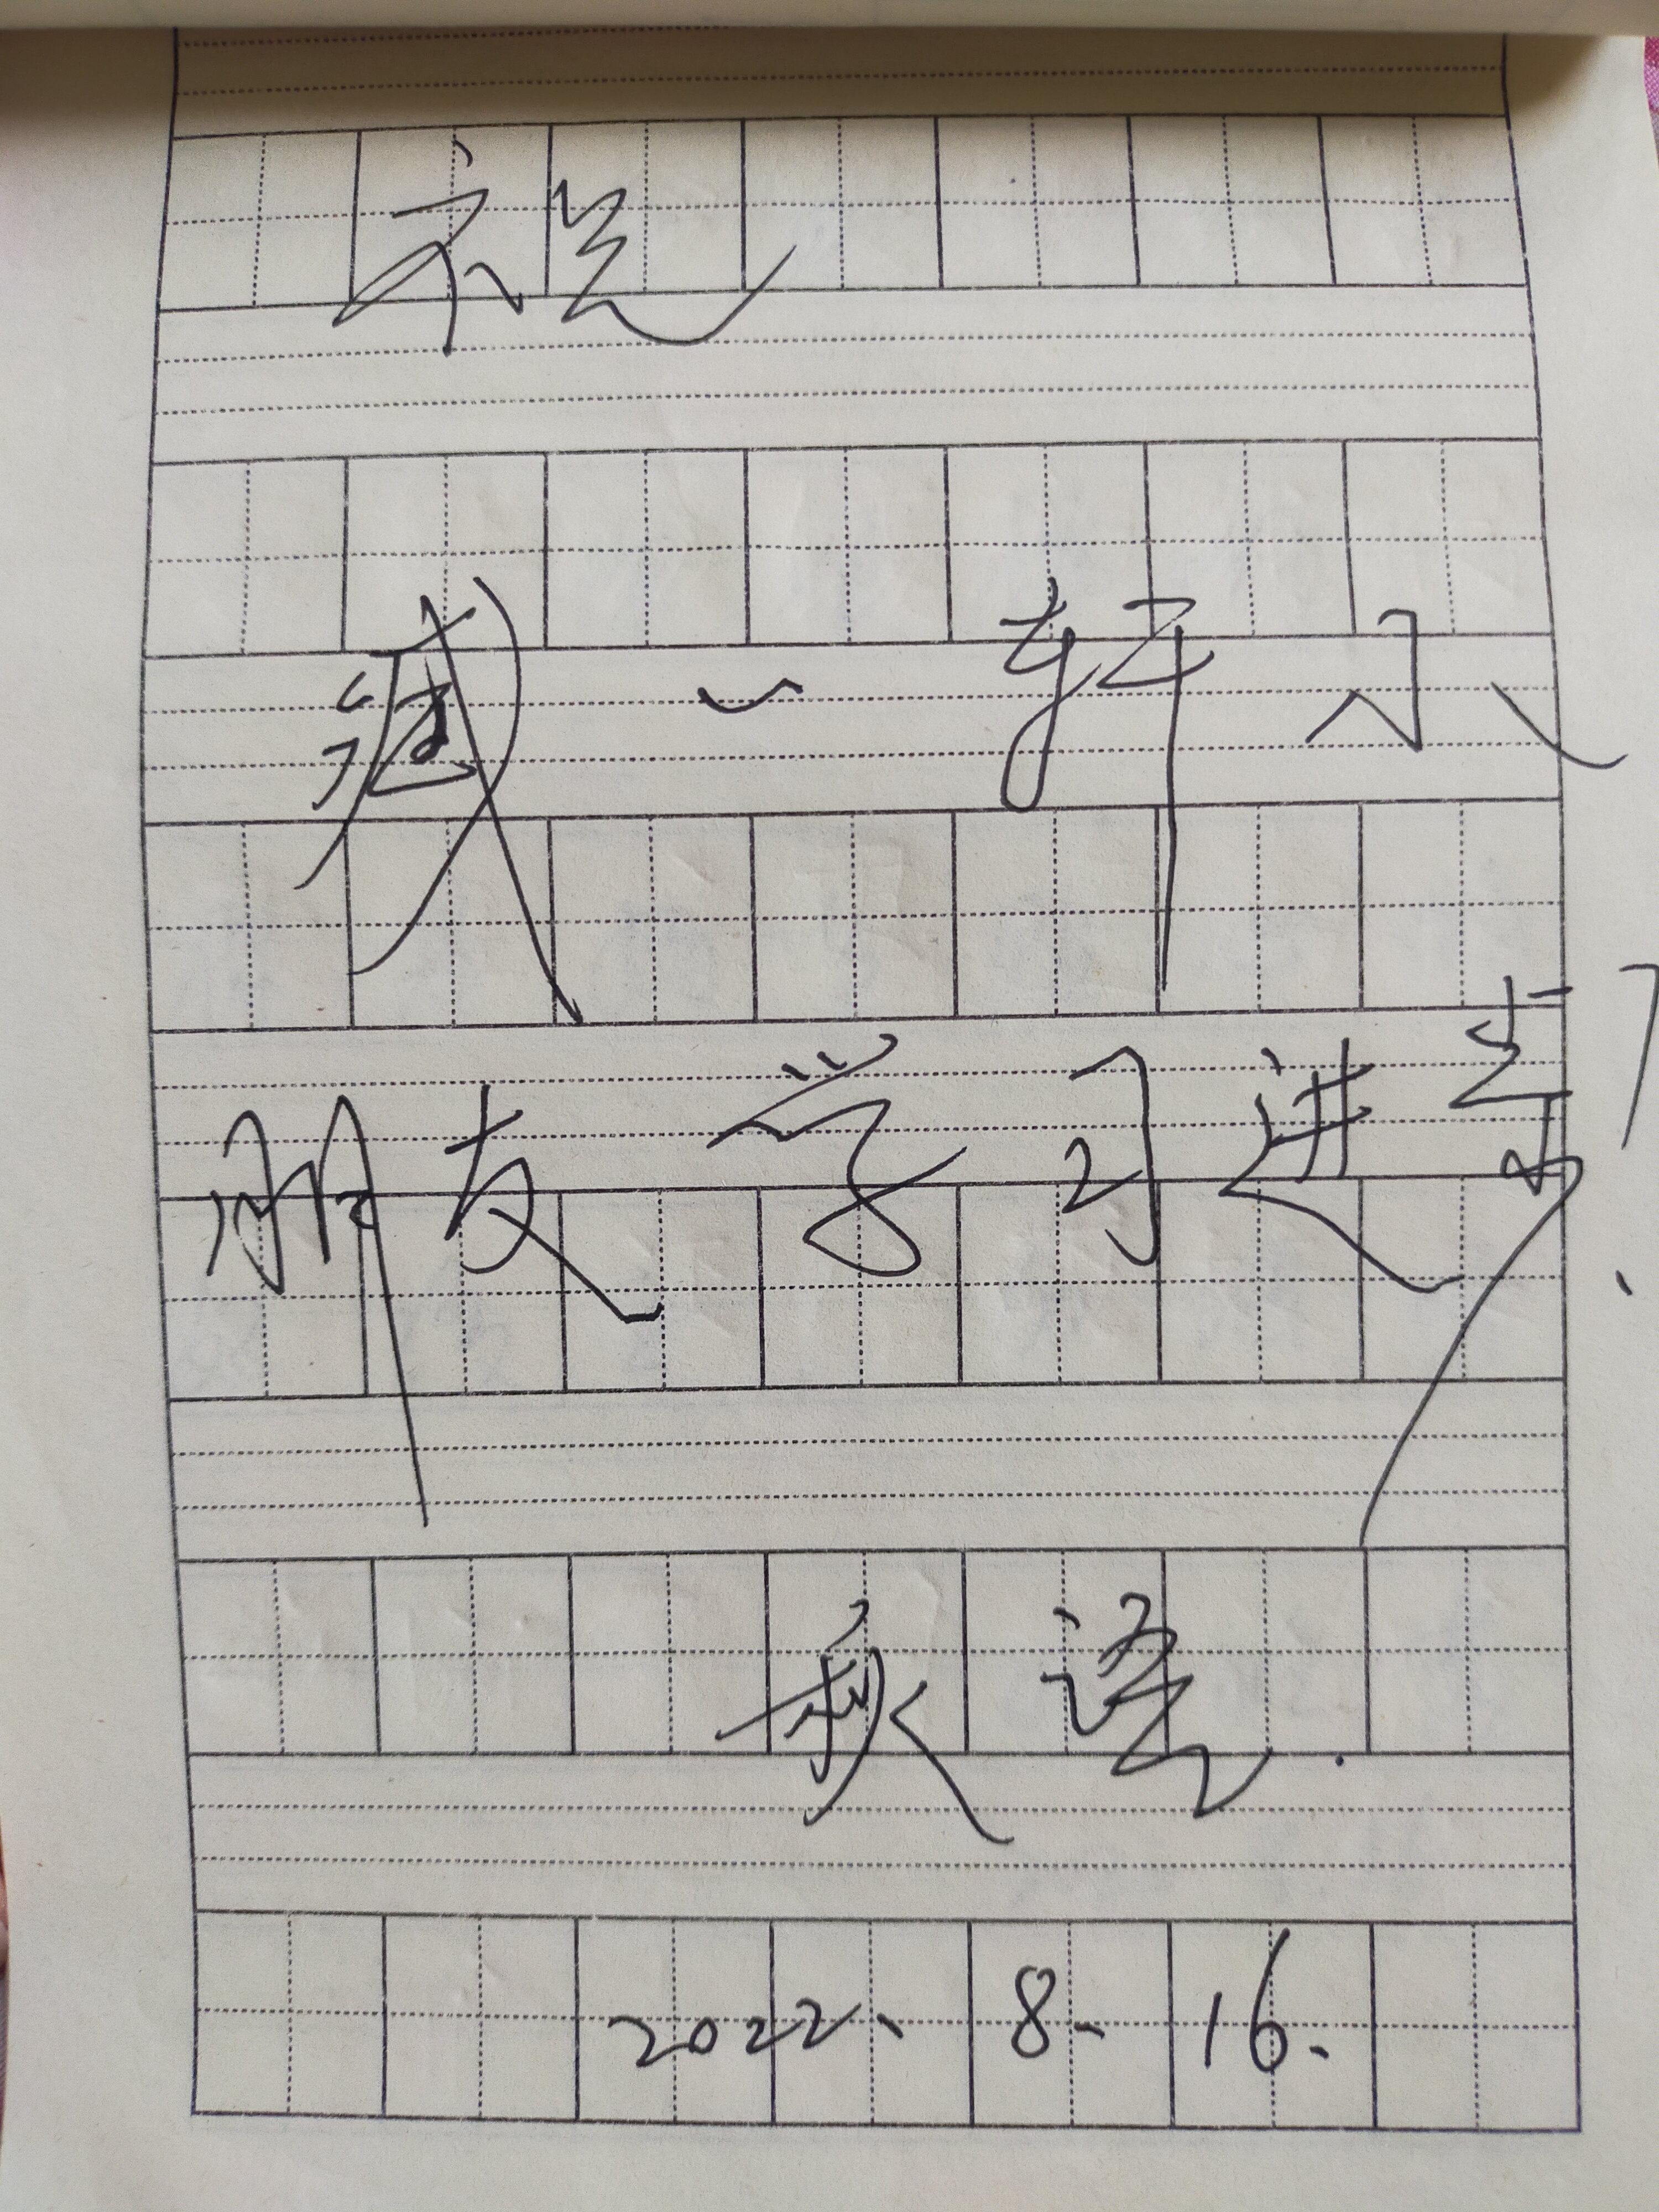 祝
臧一轩小
朋友学习进步!
秋语.
2022、8-16.